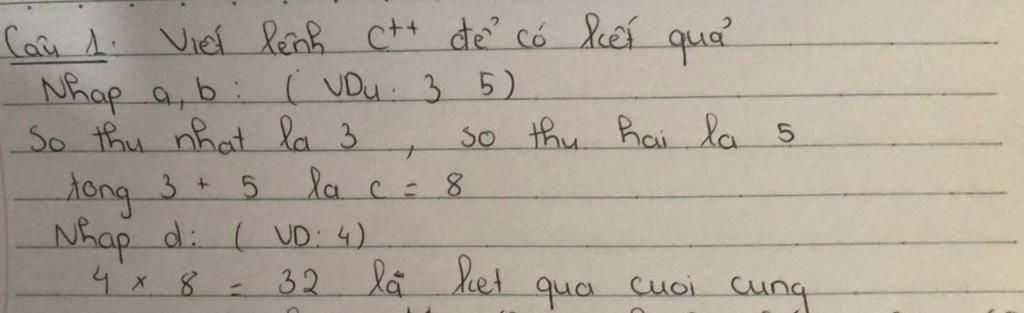 Câu 1: Viết lệnh C++ để có kết quả
Nhap a, b : ( VDu : 3 5 )
So thu nhat la 3 , so thu hai la 5
tong 3 + 5 la c = 8
Nhap d : ( VD : 4 )
4 x 8 = 32 là ket qua cuoi cung